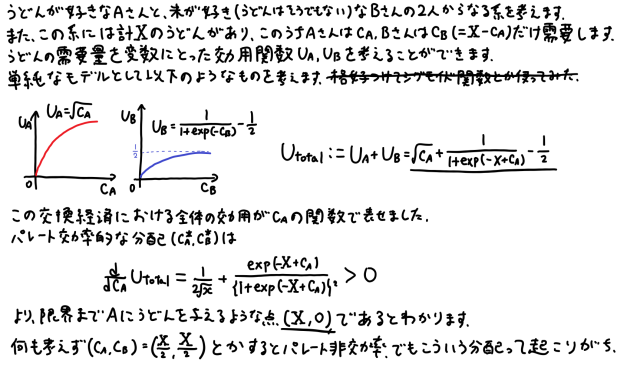 うどんが好きなAさんと、米が好き(うどんはそうでもない)なBさんの2人からなる系を考えます.
また、この系には計Xのうどんがあり、このうちAさんはCA, BさんはCB(=X-CA)だけ需要します.
うどんの需要量を変数にとった効用関数UA, UBを考えることができます.
単純なモデルとして以下のようなものを考えます. 格好つけてシグモイド関数とか使ってみた.
UA UA=√CA
0 CA
UB UB = 1/(1+exp(-CB)) - 1/2
1/2
0 CB
Utotal := UA+UB = √CA + 1/(1+exp(-X+CA)) - 1/2
この交換経済における全体の効用がCAの関数で表せました.
パレート効率的な分配(CA*, CB*)は
d/dCA Utotal = 1/(2√x) + exp(-X+CA)/{1+exp(-X+CA)}² > 0
より、限界までAにうどんを与えるような点 (X, 0) であるとわかります.
何も考えず(CA, CB)=(X/2, X/2)とかするとパレート非効率. でもこういう分配って起こりがち.